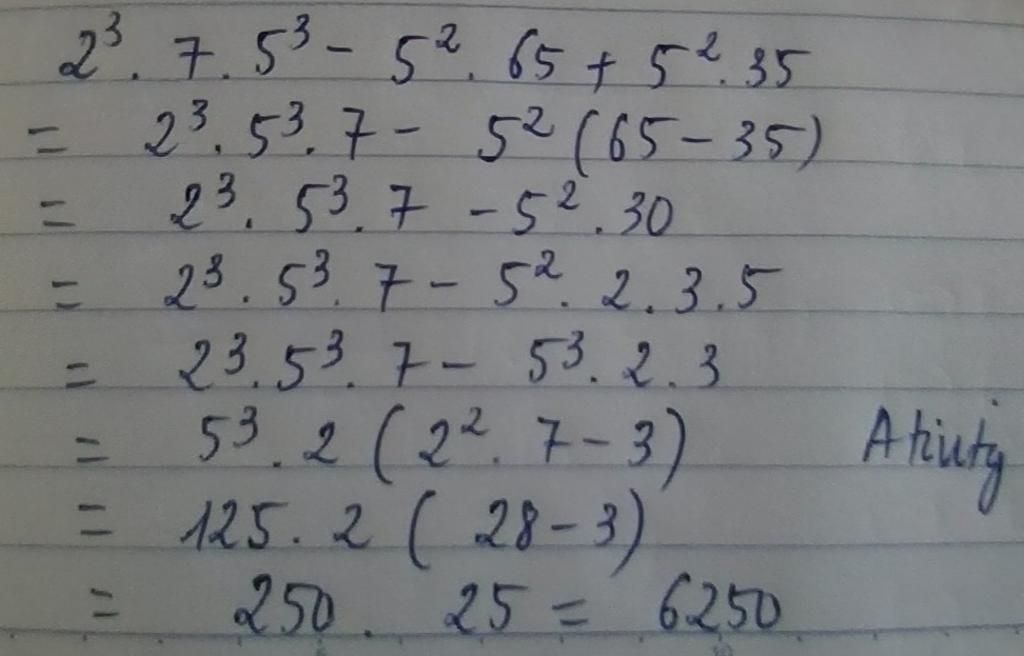 2³ . 7 . 5³ - 5² . 65 + 5² . 35
= 2³ . 5³ . 7 - 5² (65 - 35)
= 2³ . 5³ . 7 - 5² . 30
= 2³ . 5³ . 7 - 5² . 2 . 3 . 5
= 2³ . 5³ . 7 - 5³ . 2 . 3
= 5³ . 2 ( 2² . 7 - 3 )
= 125 . 2 ( 28 - 3 )
= 250 . 25 = 6250